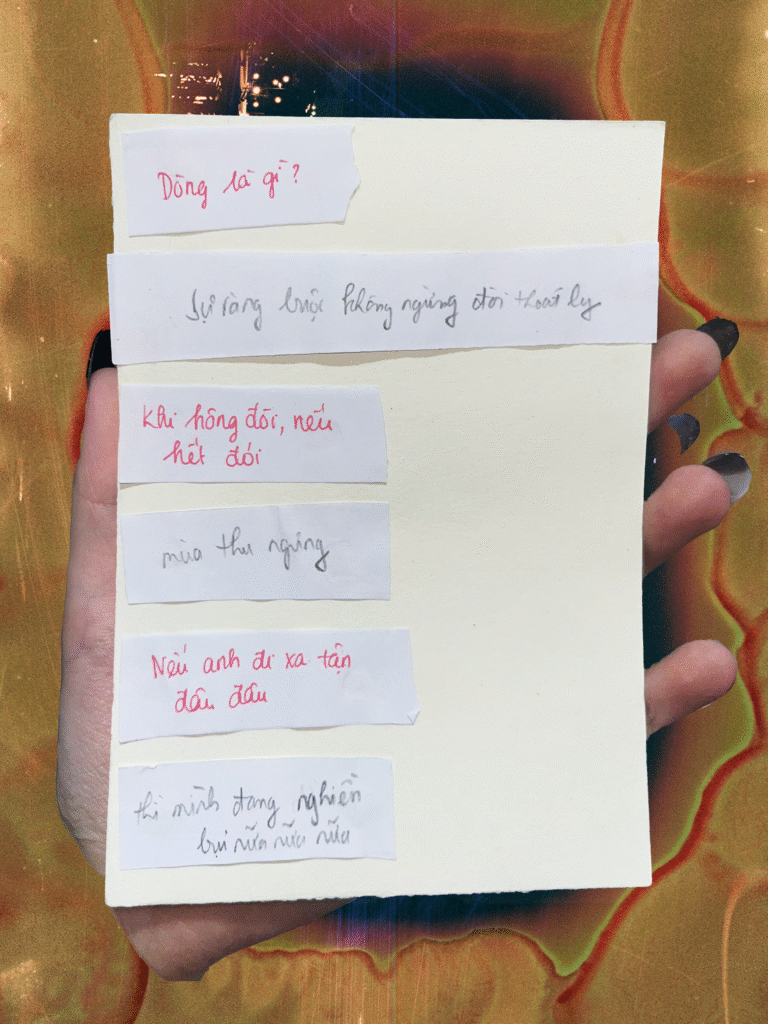 Dòng là gì?
Sự ràng buộc không ngừng đòi thoát ly
Khi hông đói, nếu
hết đói
mùa thu ngừng
Nếu anh đi xa tận
đâu đâu
thì mình đang nghiền
bụi nữa nữa nữa